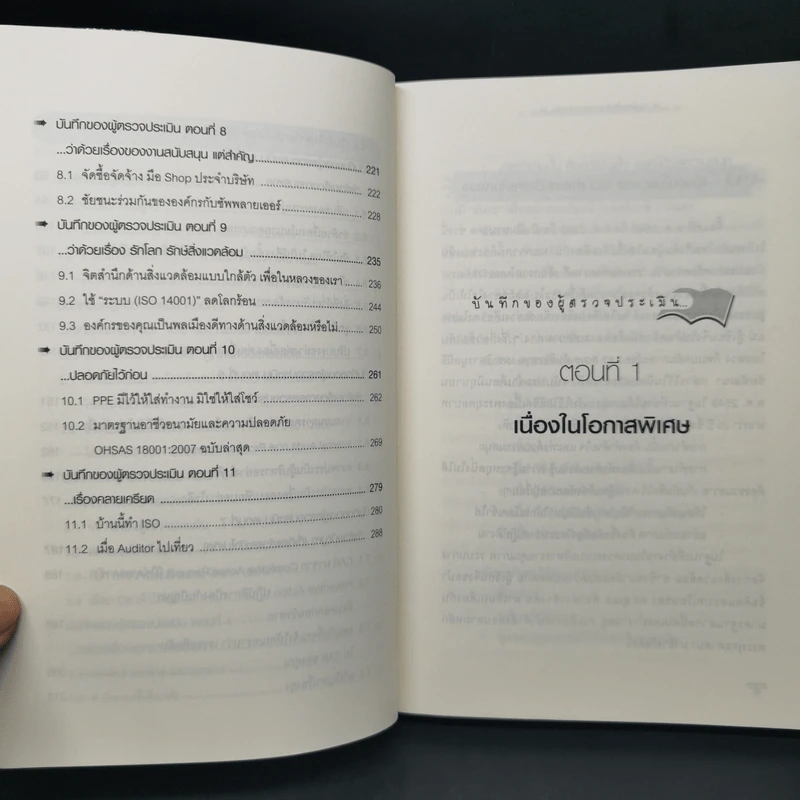 ➠ บันทึกของผู้ตรวจประเมิน ตอนที่ 8
...ว่าด้วยเรื่องของงานสนับสนุน แต่สำคัญ.................................... 221
8.1 จัดซื้อจัดจ้าง มือ Shop ประจำบริษัท .............................. 222
8.2 ชัยชนะร่วมกันขององค์กรกับซัพพลายเออร์....................... 228
➠ บันทึกของผู้ตรวจประเมิน ตอนที่ 9
...ว่าด้วยเรื่อง รักโลก รักษ์สิ่งแวดล้อม ........................................ 235
9.1 จิตสำนึกด้านสิ่งแวดล้อมแบบใกล้ตัว เพื่อในหลวงของเรา ... 236
9.2 ใช้ “ระบบ (ISO 14001)” ลดโลกร้อน .............................. 244
9.3 องค์กรของคุณเป็นพลเมืองดีทางด้านสิ่งแวดล้อมหรือไม่..... 250
➠ บันทึกของผู้ตรวจประเมิน ตอนที่ 10
...ปลอดภัยไว้ก่อน ........................................................ 261
10.1 PPE มีไว้ให้ใส่ทำงาน มิใช่ให้ใส่โชว์ .............................. 262
10.2 มาตรฐานอาชีวอนามัยและความปลอดภัย
OHSAS 18001:2007 ฉบับล่าสุด .............................. 269
➠ บันทึกของผู้ตรวจประเมิน ตอนที่ 11
...เรื่องคลายเครียด ........................................................ 279
11.1 บ้านนี้ทำ ISO ........................................................ 280
11.2 เมื่อ Auditor ไปเที่ยว .............................................. 288
บันทึกของผู้ตรวจประเมิน...
ตอนที่ 1
เนื่องในโอกาสพิเศษ